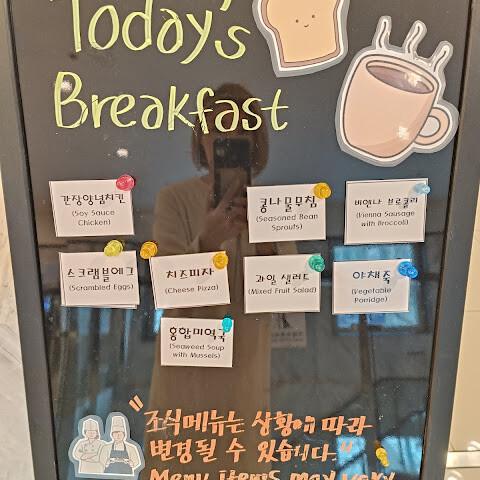 Today's
Breakfast
간장양념치킨
(Soy Sauce
Chicken)
콩나물무침
(Seasoned Bean
Sprouts)
비엔나 브로콜리
(Vienna Sausage
with Broccoli)
스크램블에그
(Scrambled Eggs)
치즈피자
(Cheese Pizza)
과일 샐러드
(Mixed Fruit Salad)
야채죽
(Vegetable
Porridge)
홍합미역국
(Seaweed Soup
with Mussels)
"조식메뉴는 상황에 따라
변경될 수 있습니다."
Menu items may vary